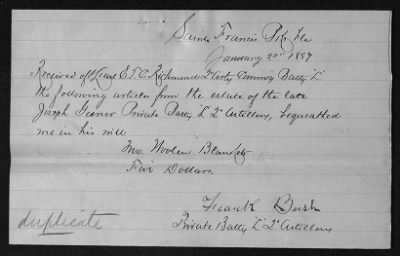 Saint Francis Bks Fla
January 20" 1897
Received of Lieut E.T.C. Richmond 2" Arty Comm'g Batty "L"
the following articles from the estate of the late
Joseph Private Batty "L" 2" Artillery, bequeathed
me in his will
Two Woolen Blankets
Five Dollars
Frank Bush
Private Batty "L" 2" Artillery
duplicate